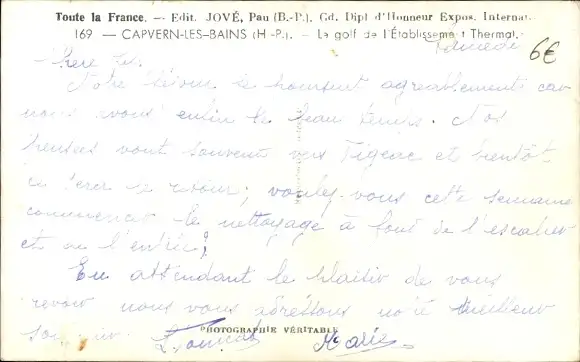 Toute la France. — Edit. JOVÉ, Pau (B.-P.). Gd. Dipl d'Honneur Expos. Internat.
169 — CAPVERN-LES-BAINS (H.-P.). — Le golf de l'Établissement Thermal.
Samedi 6€
Chère
Notre séjour se poursuit agréablement car
nous avons enfin le beau temps. Nos
pensées vont souvent vers Figeac et bientôt
ce sera le retour; voulez-vous cette semaine
commencer le nettoyage à fond de l'escalier
et de l'entrée;
En attendant le plaisir de vous
revoir nous vous adressons notre meilleur
souvenir.
PHOTOGRAPHIE VÉRITABLE
Marie